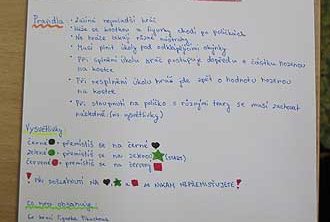 Pravidla:
- Začíná nejmladší hráč
- Háže se kostkou a figurky chodí po políčkách
- Na hráče čekají různé nástrahy
- Musí plnit úkoly pod odklápěcími okýnky
- Při splnění úkolu hráč postupuje dopředu o částku hozenou
na kostce
- Při nesplnění úkolu hráč jde zpět o hodnotu hozenou
na kostce
- Při stoupnutí na políčko s různými tvary se musí zachovat
následně: (viz vysvětlivky)
Vysvětlivky:
černé - přemístíš se na černé
zelené - přemístíš se na zelenou
červené - přemístíš se na červený
! PŘI DOSÁHNUTÍ NA A SE NIKAM NEPŘEMISŤUJETE!
Co hra obsahuje: